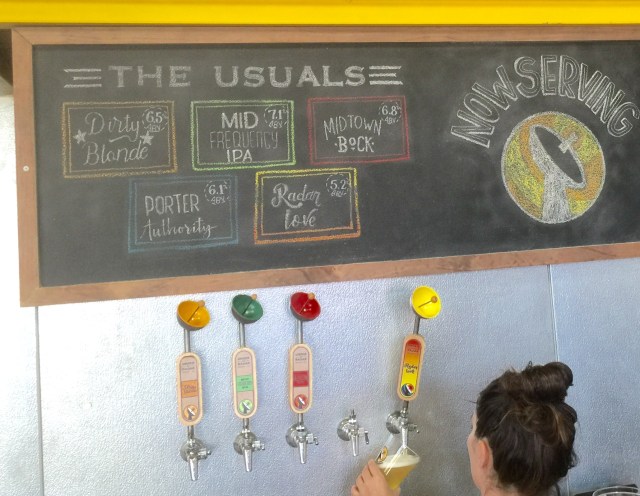 THE USUALS
Dirty
Blonde
6.5
ABV
MID
FREQUENCY
IPA
7.1
ABV
MIDTOWN
BOCK
6.8
ABV
PORTER
Authority
6.1
ABV
Radar
Love
5.2
ABV
NOW SERVING